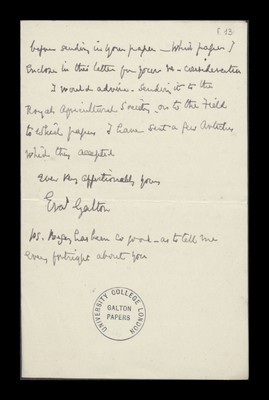 f 13
before sending in your paper – which paper I
Enclose in this letter for your re-consideration
I would advise – sending it to the
Royal Agricultural Society or to the Field
to which paper I have sent a few Articles
which they accepted
Ever Very affectionately yours
Galton
PS. has been so good – as to tell me
Every fortnight about you
UNIVERSITY COLLEGE LONDON
GALTON
PAPERS